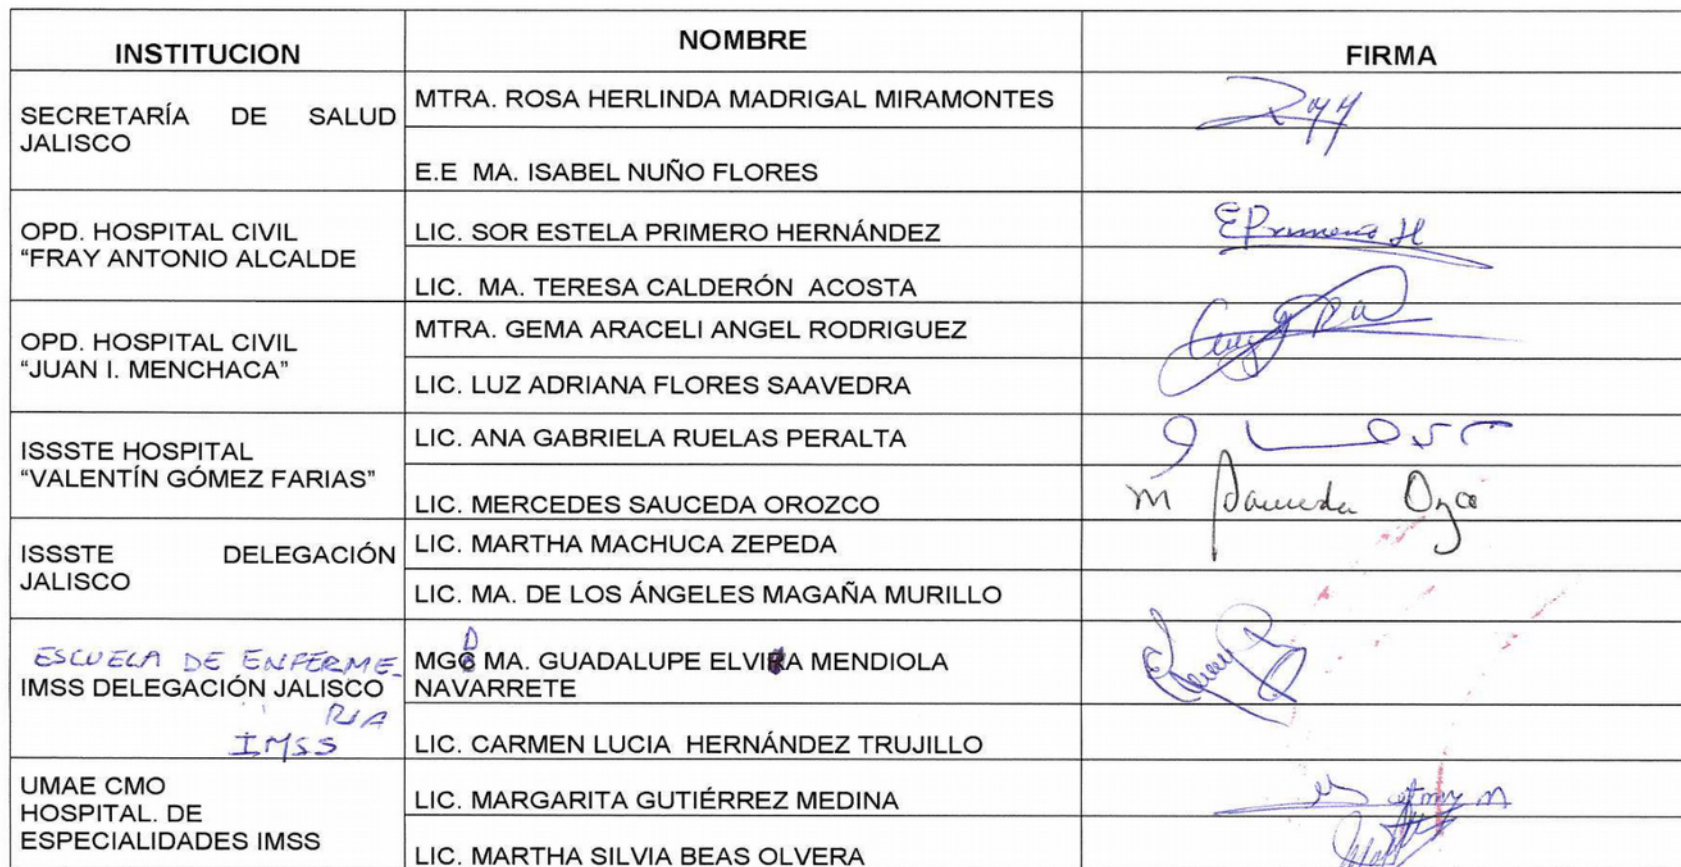 INSTITUCION NOMBRE FIRMA
SECRETARÍA DE SALUD
JALISCO
MTRA. ROSA HERLINDA MADRIGAL MIRAMONTES
E.E MA. ISABEL NUÑO FLORES
OPD. HOSPITAL CIVIL
“FRAY ANTONIO ALCALDE
LIC. SOR ESTELA PRIMERO HERNÁNDEZ
EPrimero H
LIC. MA. TERESA CALDERÓN ACOSTA
OPD. HOSPITAL CIVIL
“JUAN I. MENCHACA”
MTRA. GEMA ARACELI ANGEL RODRIGUEZ
LIC. LUZ ADRIANA FLORES SAAVEDRA
ISSSTE HOSPITAL
“VALENTÍN GÓMEZ FARIAS”
LIC. ANA GABRIELA RUELAS PERALTA
LIC. MERCEDES SAUCEDA OROZCO
M Sauceda Ozco
ISSSTE DELEGACIÓN
JALISCO
LIC. MARTHA MACHUCA ZEPEDA
LIC. MA. DE LOS ÁNGELES MAGAÑA MURILLO
ESCUELA DE ENFERME-
IMSS DELEGACIÓN JALISCO
RIA
IMSS
D
MGC MA. GUADALUPE ELVIRA MENDIOLA
NAVARRETE
LIC. CARMEN LUCIA HERNÁNDEZ TRUJILLO
UMAE CMO
HOSPITAL. DE
ESPECIALIDADES IMSS
LIC. MARGARITA GUTIÉRREZ MEDINA
LIC. MARTHA SILVIA BEAS OLVERA